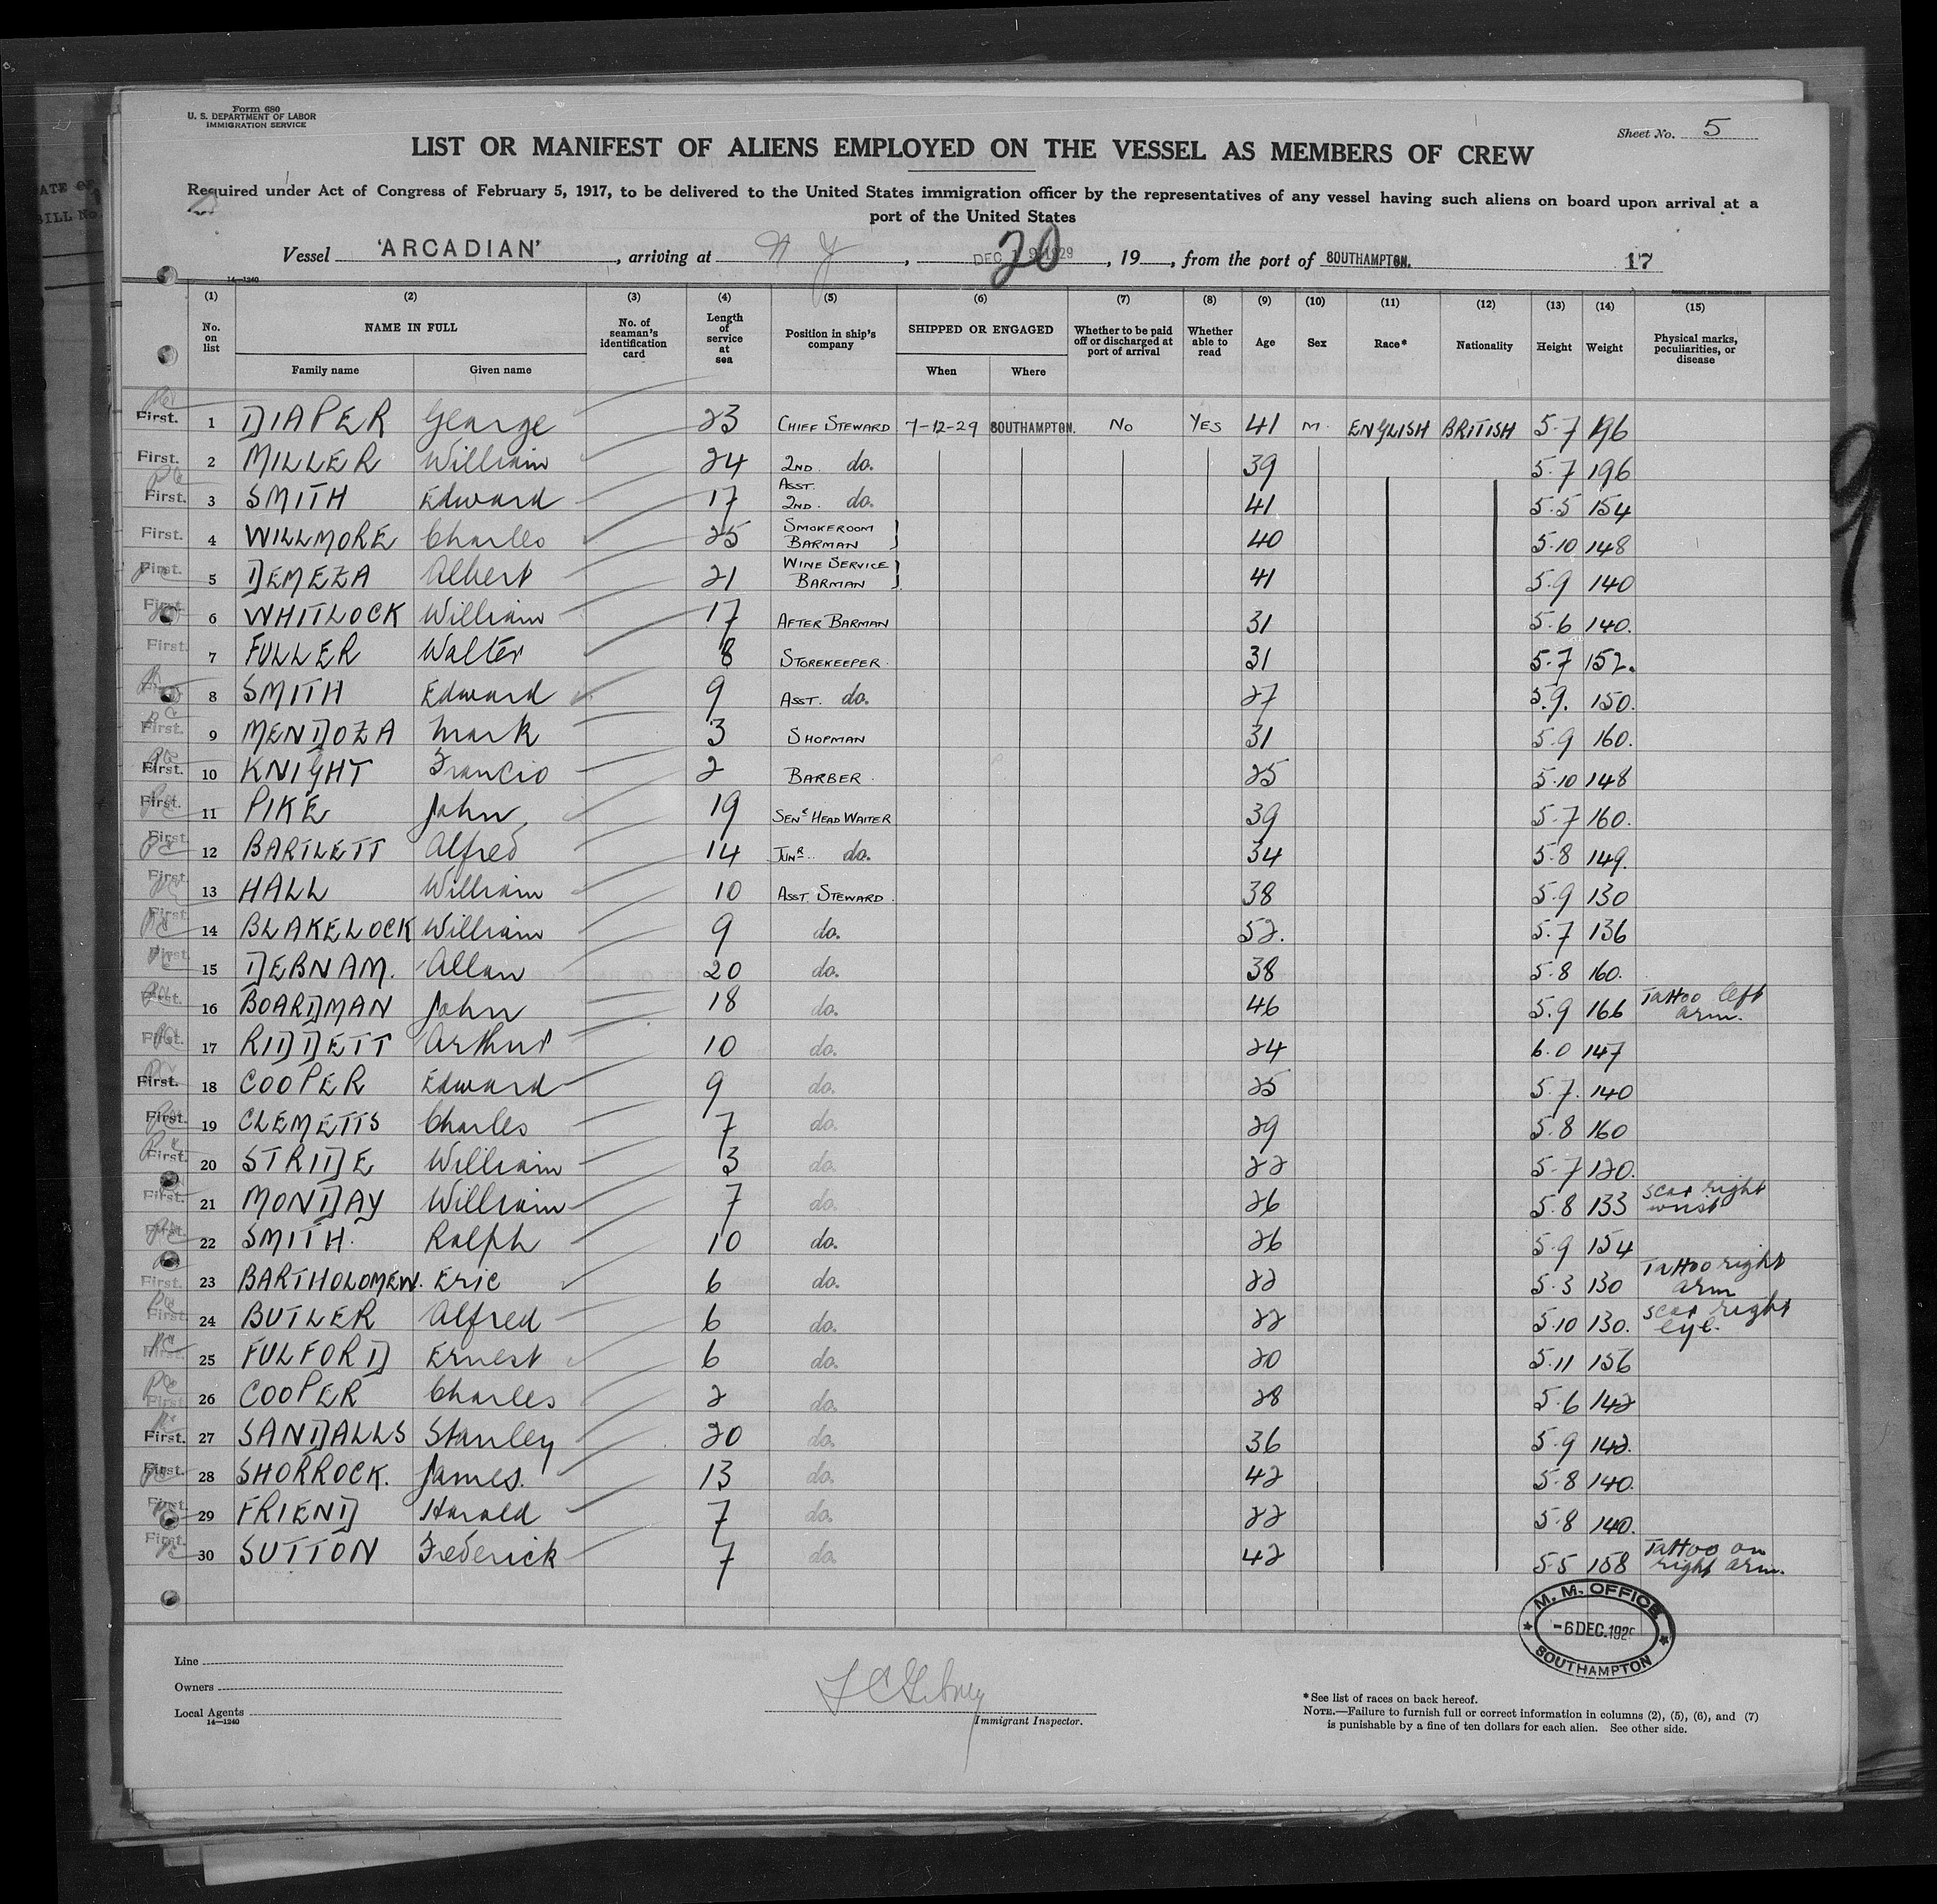 Form 680
U. S. DEPARTMENT OF LABOR
IMMIGRATION SERVICE
Sheet No. 5
LIST OR MANIFEST OF ALIENS EMPLOYED ON THE VESSEL AS MEMBERS OF CREW
Required under Act of Congress of February 5, 1917, to be delivered to the United States immigration officer by the representatives of any vessel having such aliens on board upon arrival at a
port of the United States
Vessel 'ARCADIAN', arriving at N Y, DEC 20 1929, 19, from the port of SOUTHAMPTON. 17
14—1240
(1) (2) (3) (4) (5) (6) (7) (8) (9) (10) (11) (12) (13) (14) (15)
No. on list NAME IN FULL No. of seaman's identification card Length of service at sea Position in ship's company SHIPPED OR ENGAGED Whether to be paid off or discharged at port of arrival Whether able to read Age Sex Race* Nationality Height Weight Physical marks, peculiarities, or disease
Family name Given name When Where
First. 1 DIAPER George 23 CHIEF STEWARD 7-12-29 SOUTHAMPTON. No YES 41 M. ENGLISH BRITISH 5.7 196
First. 2 MILLER William 24 2ND. do. 39 5.7 196
First. 3 SMITH Edward 17 ASST. 2ND. do. 41 5.5 154
First. 4 WILLMORE Charles 25 SMOKEROOM BARMAN 40 5.10 148
First. 5 DEMEZA Albert 21 WINE SERVICE BARMAN 41 5.9 140
First. 6 WHITLOCK William 17 AFTER BARMAN 31 5.6 140.
First. 7 FULLER Walter 8 STOREKEEPER. 31 5.7 152.
First. 8 SMITH Edward 9 ASST. do. 27 5.9. 150.
First. 9 MENDOZA Mark 3 SHOPMAN 31 5.9 160.
First. 10 KNIGHT Francis 2 BARBER. 25 5.10 148
First. 11 PIKE John 19 SENR HEAD WAITER 39 5.7 160.
First. 12 BARTLETT Alfred 14 JUNR. do. 34 5.8 149.
First. 13 HALL William 10 ASST. STEWARD. 38 5.9 130
First. 14 BLAKELOCK William 9 do. 52. 5.7 136
First. 15 DEBNAM. Allan 20 do. 38 5.8 160.
First. 16 BOARDMAN John 18 do. 46 5.9 166 Tattoo left arm.
First. 17 RIDDETT Arthur 10 do. 24 6.0 147
First. 18 COOPER Edward 9 do. 25 5.7. 140
First. 19 CLEMETTS Charles 7 do. 29 5.8 160
First. 20 STRIDE William 3 do. 22 5.7 120.
First. 21 MONDAY William 7 do. 26 5.8 133 scar right wrist
First. 22 SMITH. Ralph 10 do. 26 5.9 154
First. 23 BARTHOLOMEW. Eric 6 do. 22 5.3 130 Tattoo right arm
First. 24 BUTLER Alfred 6 do. 22 5.10 130. scar right eye.
First. 25 FULFORD Ernest 6 do. 20 5.11 156
First. 26 COOPER Charles 2 do. 28 5.6 142
First. 27 SANDALLS Stanley 20 do. 36 5.9 142.
First. 28 SHORROCK. James. 13 do. 42 5.8 140.
First. 29 FRIEND Harold 7 do. 22 5.8 140.
First. 30 SUTTON Frederick 7 do. 42 5.5 158 Tattoo on right arm.
M. M. OFFICE
-6 DEC. 1929
SOUTHAMPTON
Line
Owners
Local Agents
14—1240
Immigrant Inspector.
*See list of races on back hereof.
NOTE.—Failure to furnish full or correct information in columns (2), (5), (6), and (7)
is punishable by a fine of ten dollars for each alien. See other side.
9